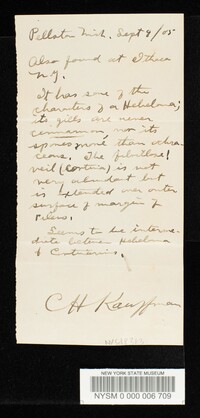 Pellston Mich. Sept 9/05
Also found at Ithaca
N.Y.
It has some of the
characters of a Hebeloma;
its gills are never
cinnamon, nor its
spores more than ochra-
ceous. The fibrillose
veil (Cortina) is not
very abundant but
is extended over outer
surface & margin of
Pileus.
Seems to be interme-
diate between Hebeloma
& Cortinarius.
C H Kauffman
NEW YORK STATE MUSEUM
NYSM 0 000 006 709